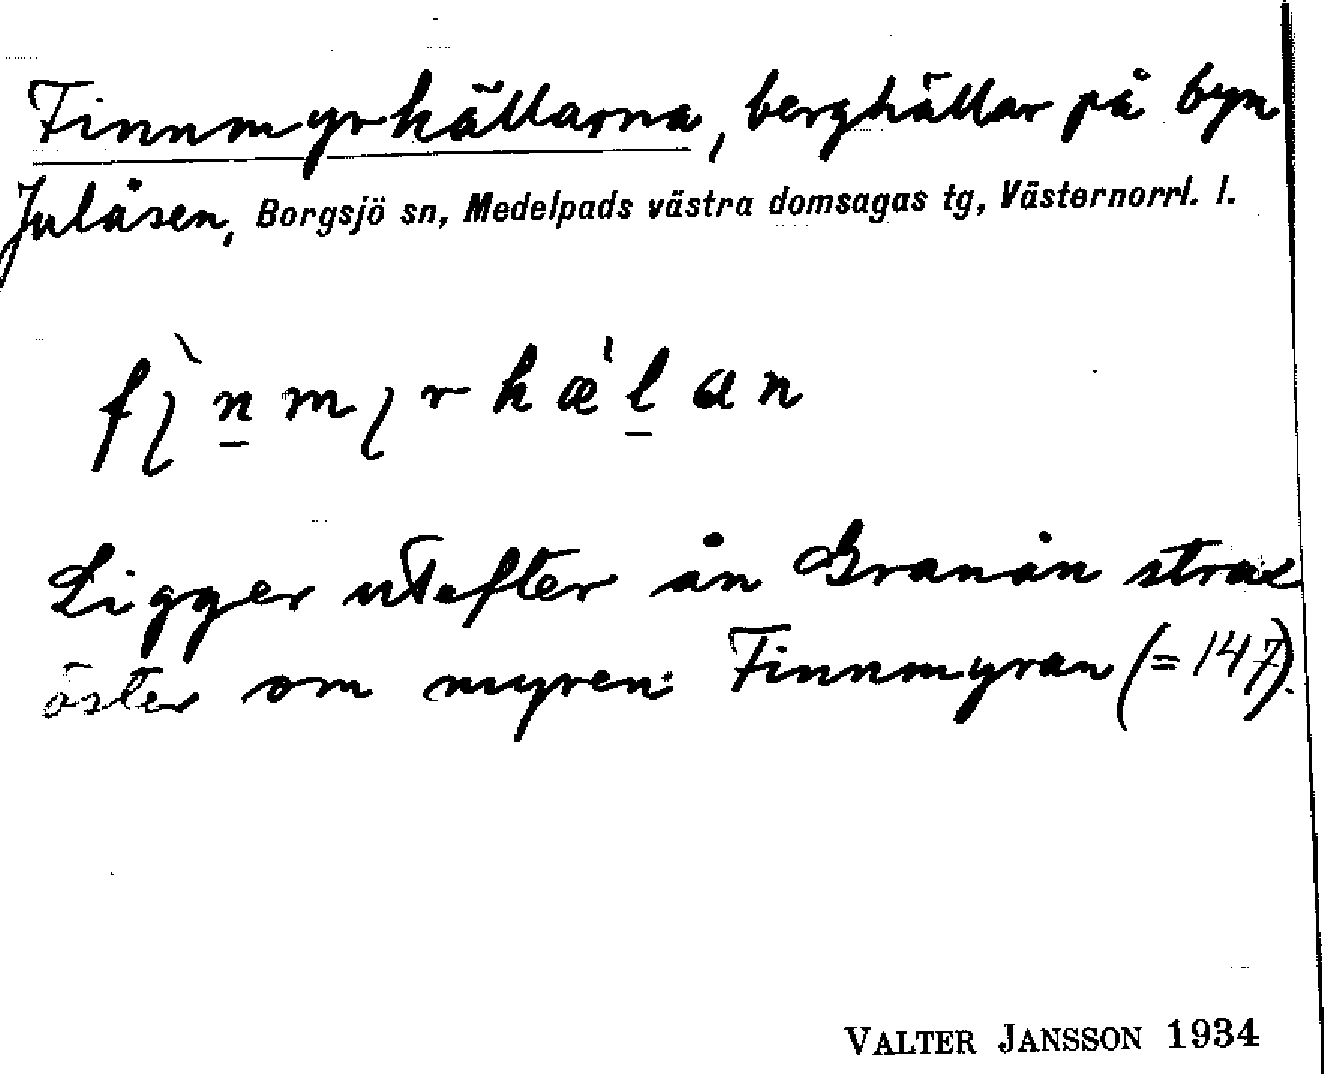 Finnmyrhällarna, berghällar på byn
Julåsen, Borgsjö sn, Medelpads västra domsagas tg, Västernorrl. l.
fı̀n̲mırhæ̀l̲an
Ligger utefter ån Granån strax
öster om myren Finnmyran (= 147).
VALTER JANSSON 1934